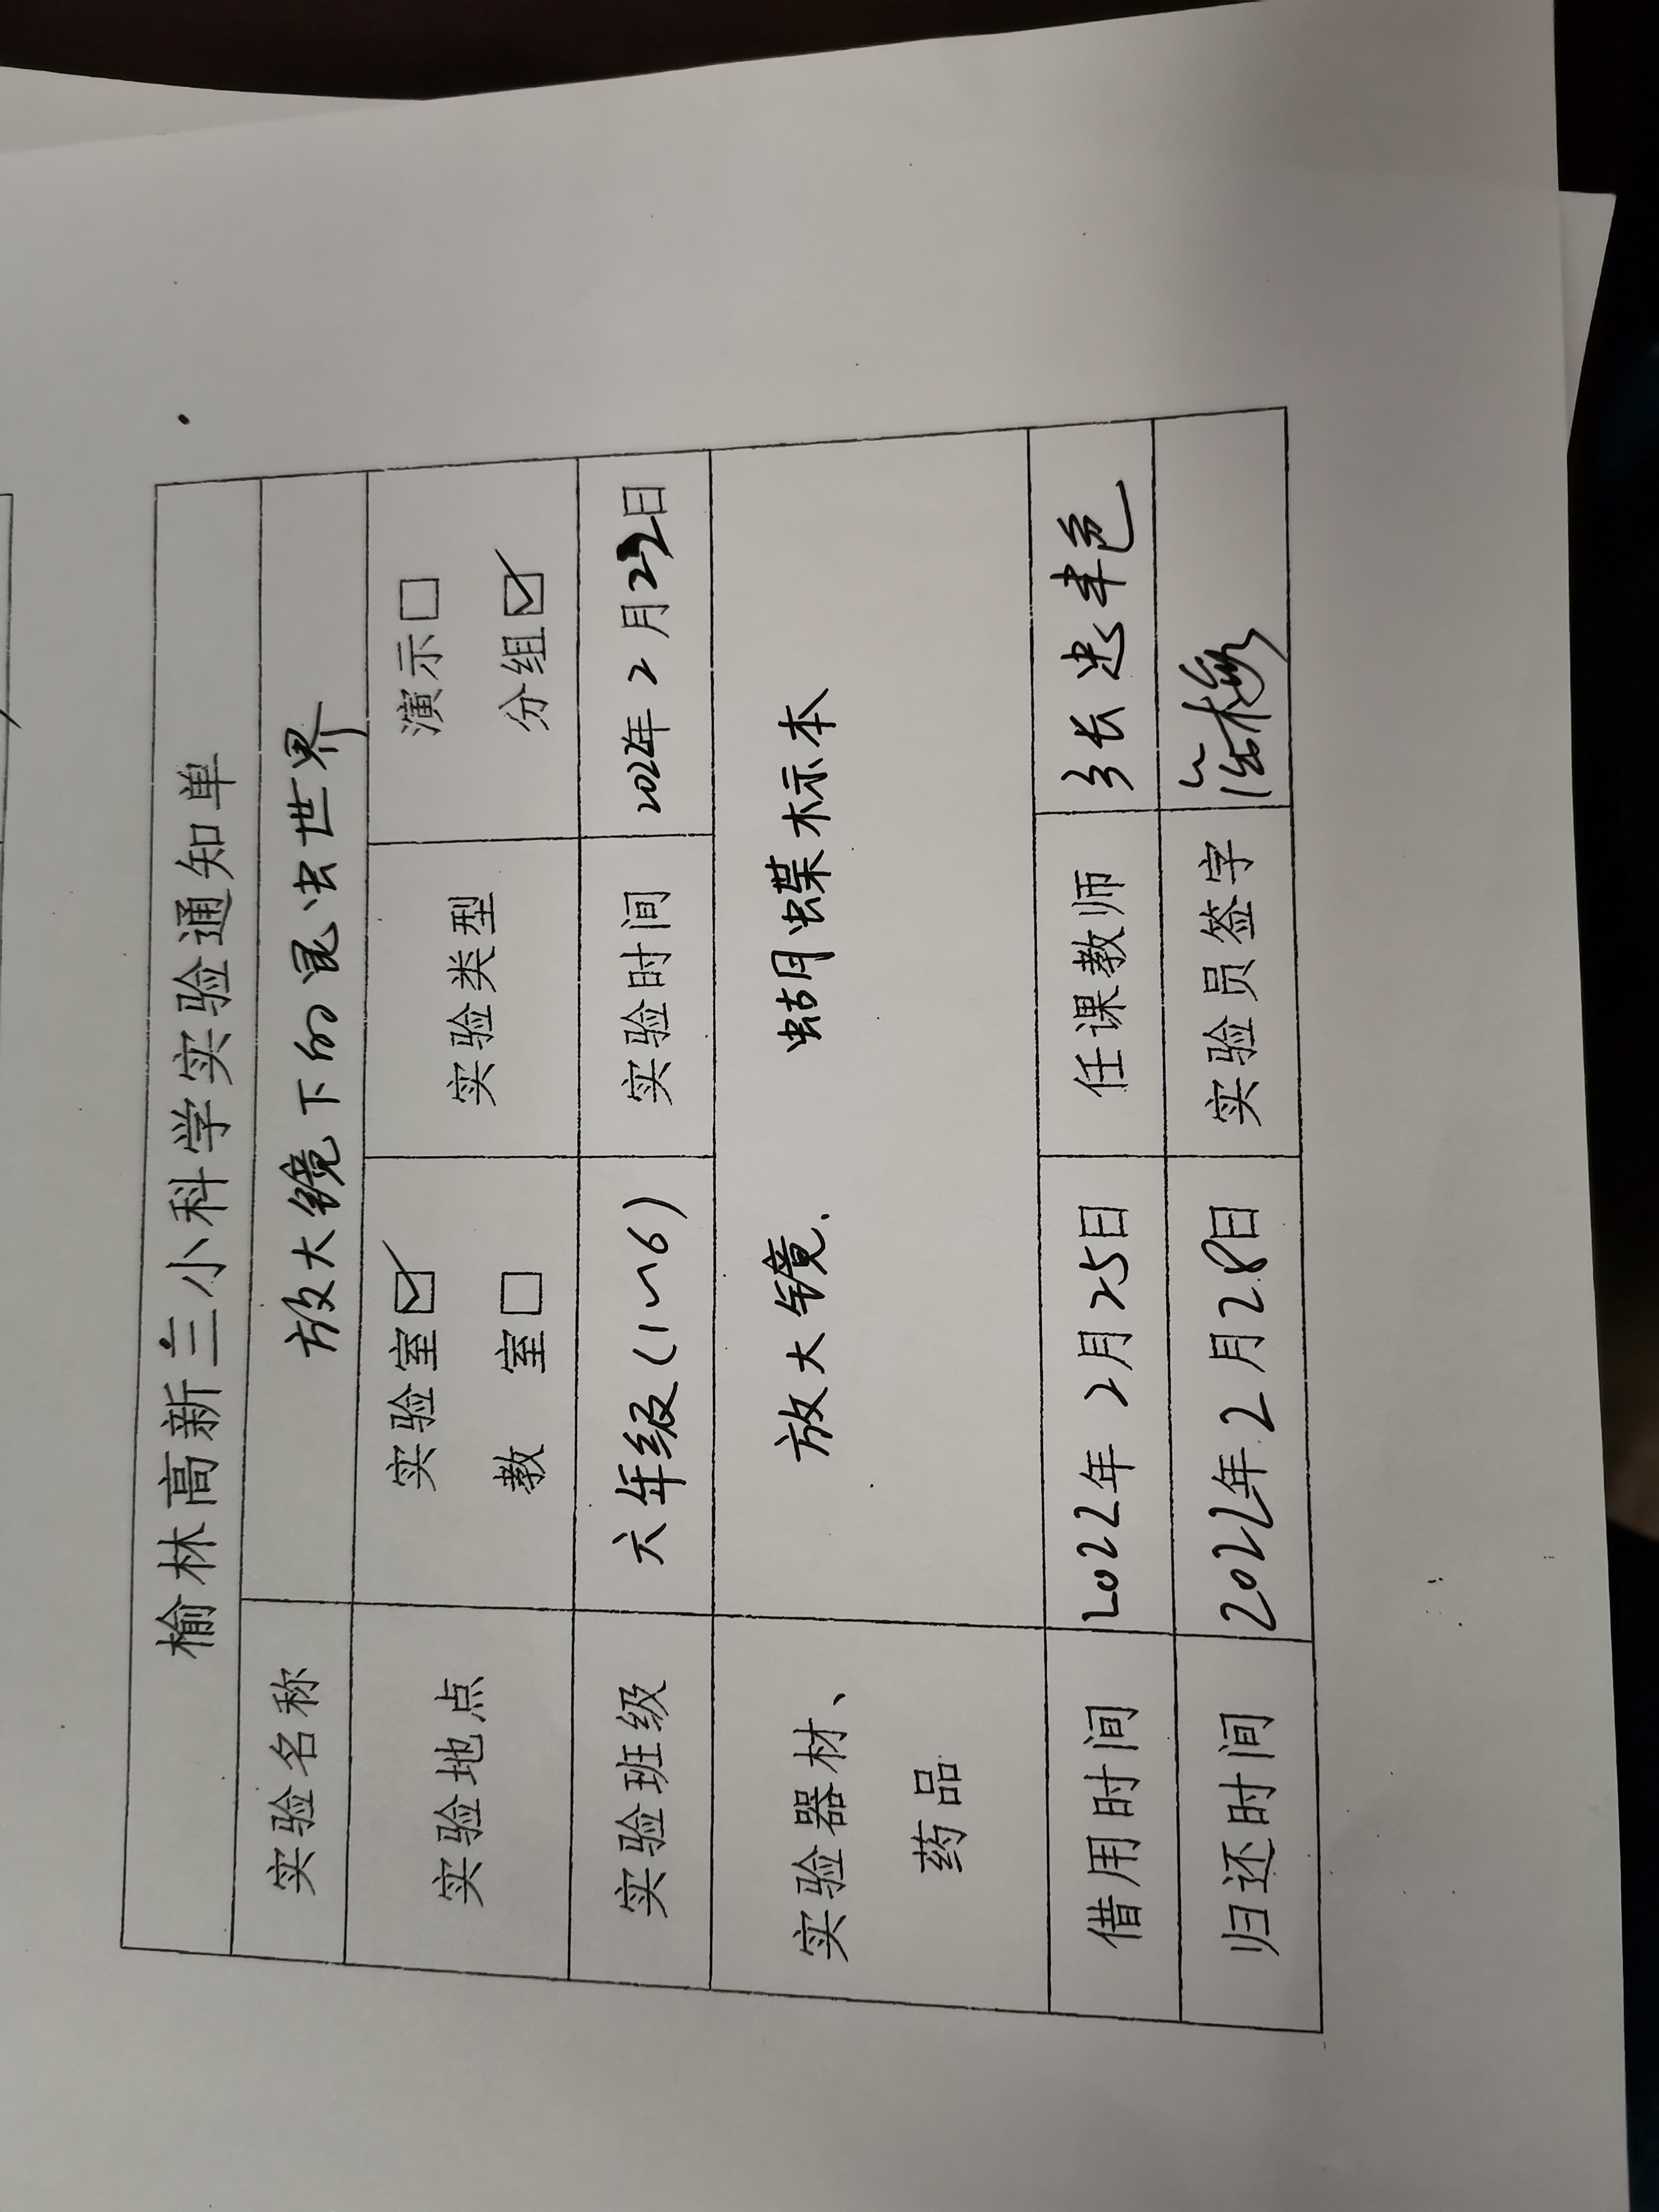 榆林高新三小科学实验通知单
实验名称 放大镜下的昆虫世界
实验地点 实验室☑ 教 室□ 实验类型 演示□ 分组☑
实验班级 六年级(1~6) 实验时间 2022年2月 日
实验器材、药品 放大镜、 蝴蝶标本
借用时间 2022年2月25日 任课教师 张忠
归还时间 2022年2月28日 实验员签字